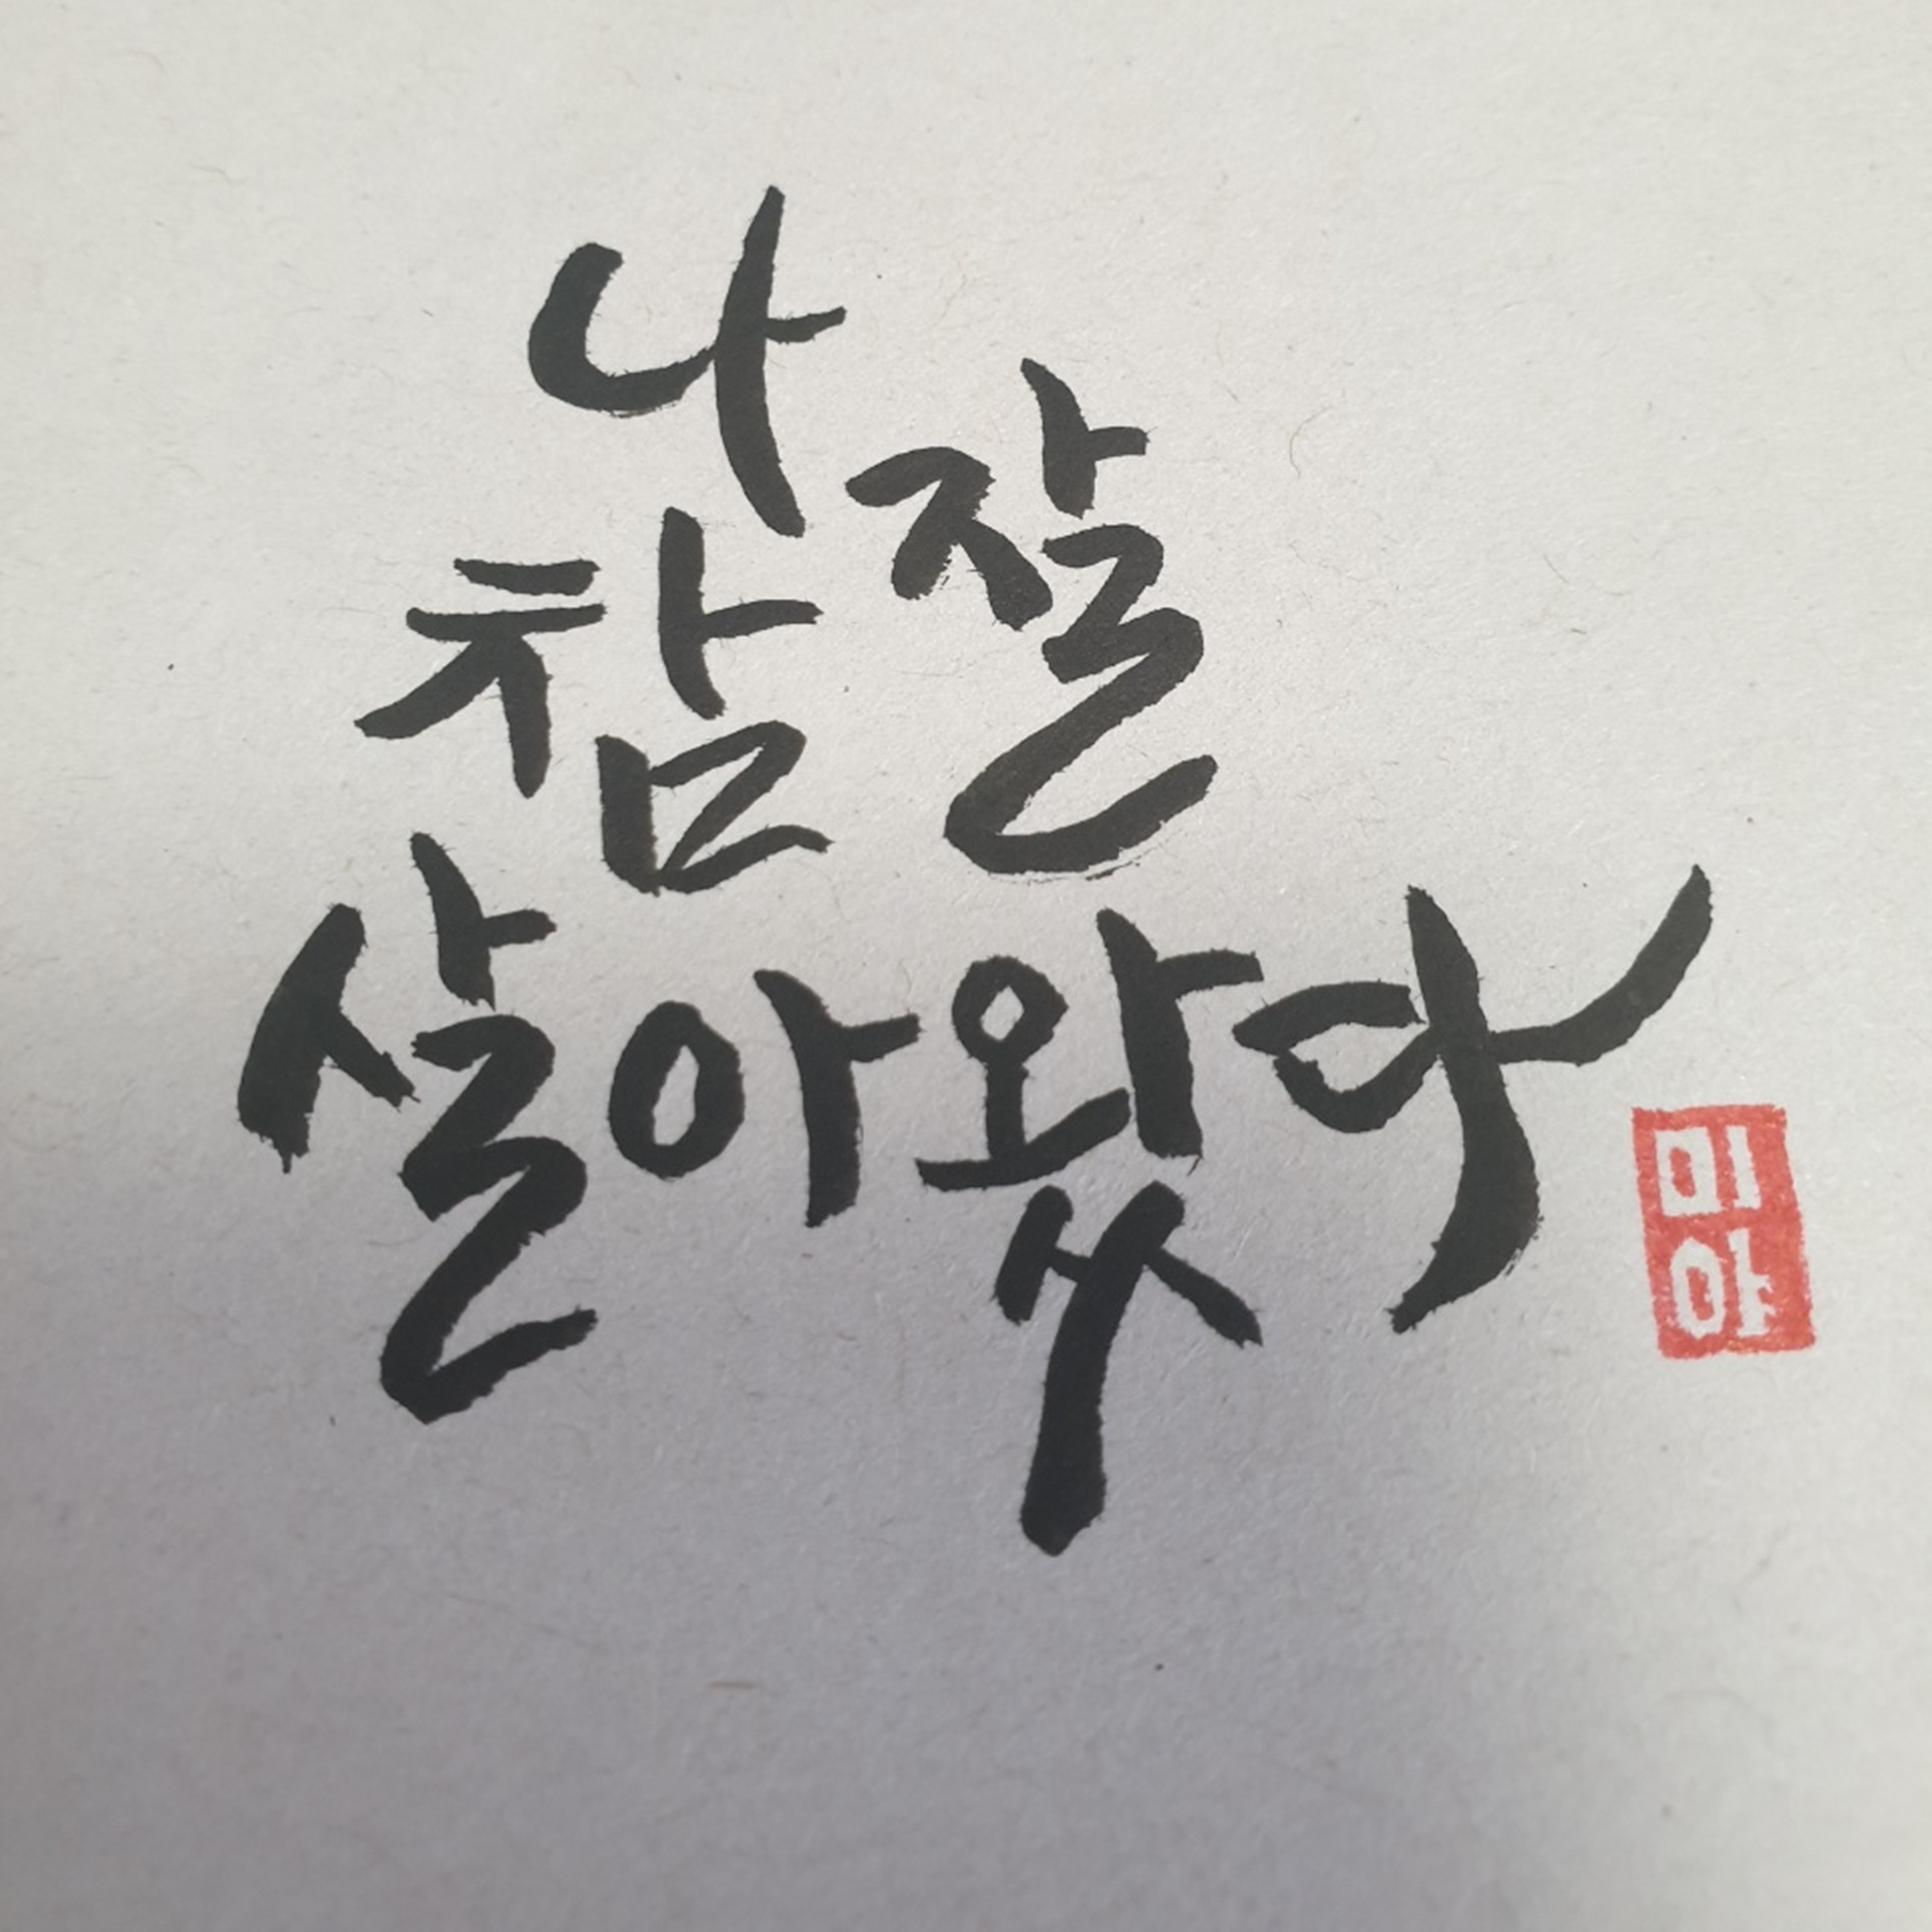 나
참 잘
살아왔다
미
야